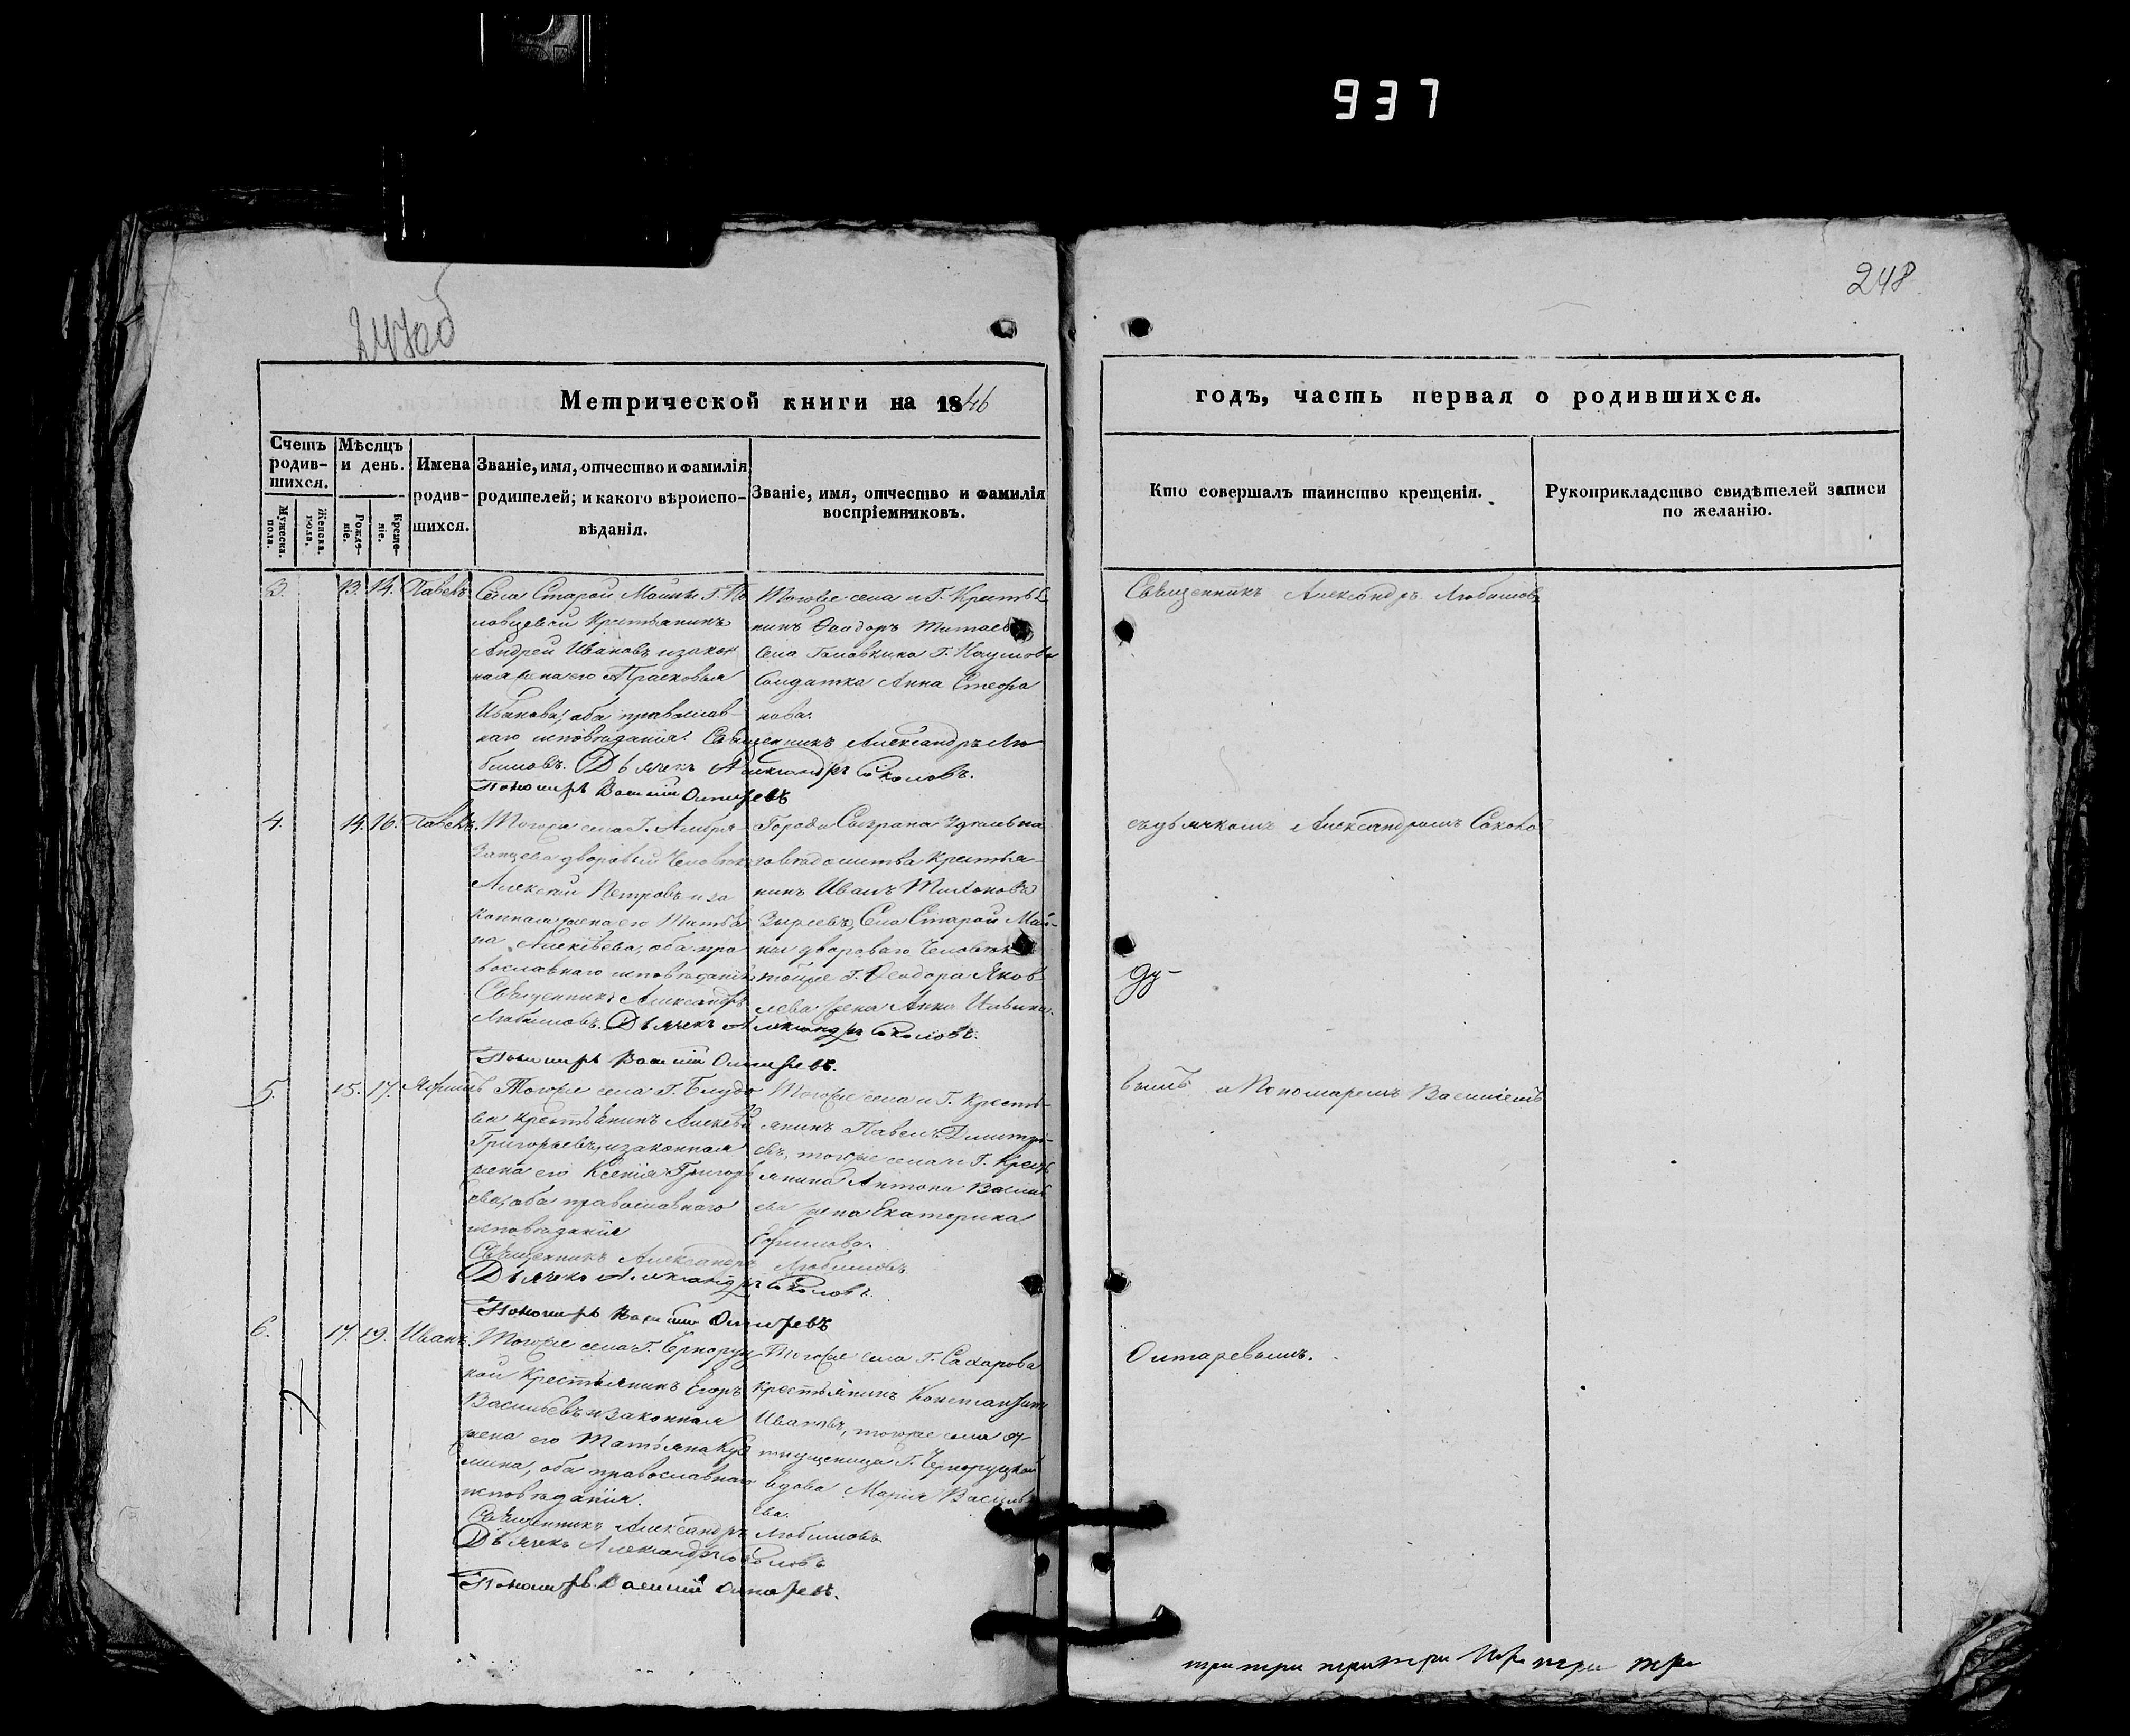 937
248
247об
Метрической книги на 1846
годъ, часть первая о родившихся.
Счетъ родив-шихся.
Мужеска. пола.
Женска. пола.
Мѣсяцъ и день.
Рожде-ніе.
Креще-ніе.
Имена родив-шихся.
Званіе, имя, отчество и фамилія родителей; и какого вѣроиспо-вѣданія.
Званіе, имя, отчество и фамилія воспріемниковъ.
Кто совершалъ таинство крещенія.
Рукоприкладство свидѣтелей записи по желанію.
3. 13. 14. Павелъ
Села Старой Майны Г. По
ловцевой Крестьянинъ
Андрей Ивановъ и закон
ная жена его Прасковья
Иванова, оба православ-
наго исповѣданія. Священникъ Александръ Лю
бимовъ. Дьячекъ Александръ Соколовъ.
Пономарь Василий Олтаревъ
Тогоже села и Г. Крестья
нинъ Ѳеодоръ
Села Головкина Г. Наумова
Солдатка Анна Стефа
нова.
Священникъ Александръ Любимовъ
4. 14. 16. Павелъ.
Тогоже села Г.
дворовый Человѣкъ
Алексѣй Петровъ и за
конная жена его Татья
на Алексѣева, оба пра
вославнаго исповѣданія
Священникъ Александръ
Любимовъ. Дьячекъ Александръ Соколовъ.
Пономарь Василий Олтаревъ.
Города Сызрана Удѣльна
го вѣдомства крестья-
нинъ Иванъ Тихоновъ
Зыревъ, Села Старой Май-
ны двороваго Человѣка
тойже Г. Ѳеодора Яков
лева жена Анна
съ дьячкомъ Александромъ Соколо
5. 15. 17. Ефимъ
Тогоже села Г. Блудо
ва крестьянинъ Алексѣй
Григорьевъ и законная
жена его Ксенія Григорь
ева, оба православнаго
исповѣданія
Священникъ Александръ Любимовъ
Дьячекъ Александръ Соколовъ.
Пономарь Василий Олтаревъ
Тогоже села и Г. Кресть-
янинъ Павелъ Дмитрі-
евъ, тогоже села и Г. Кресть
янина Антона Василь
ева жена Екатерина
Ефимова.
вымъ и Пономаремъ Василіемъ
6. 17. 19. Иванъ.
Тогоже села Г. Чернoруц
кой Крестьянинъ Егоръ
Васильевъ и законная
жена его Татьяна Куз
мина, оба православнаго
исповѣданія.
Священникъ Александръ Любимовъ
Дьячекъ Александръ Соколовъ
Пономарь Василий Олтаревъ.
Тогоже села Г. Сахарова
крестьянинъ Константинъ
Ивановъ, тогоже села от
пущеница Г. Черноруцкой
вдова Марія Василь
ева.
Олтаревымъ.